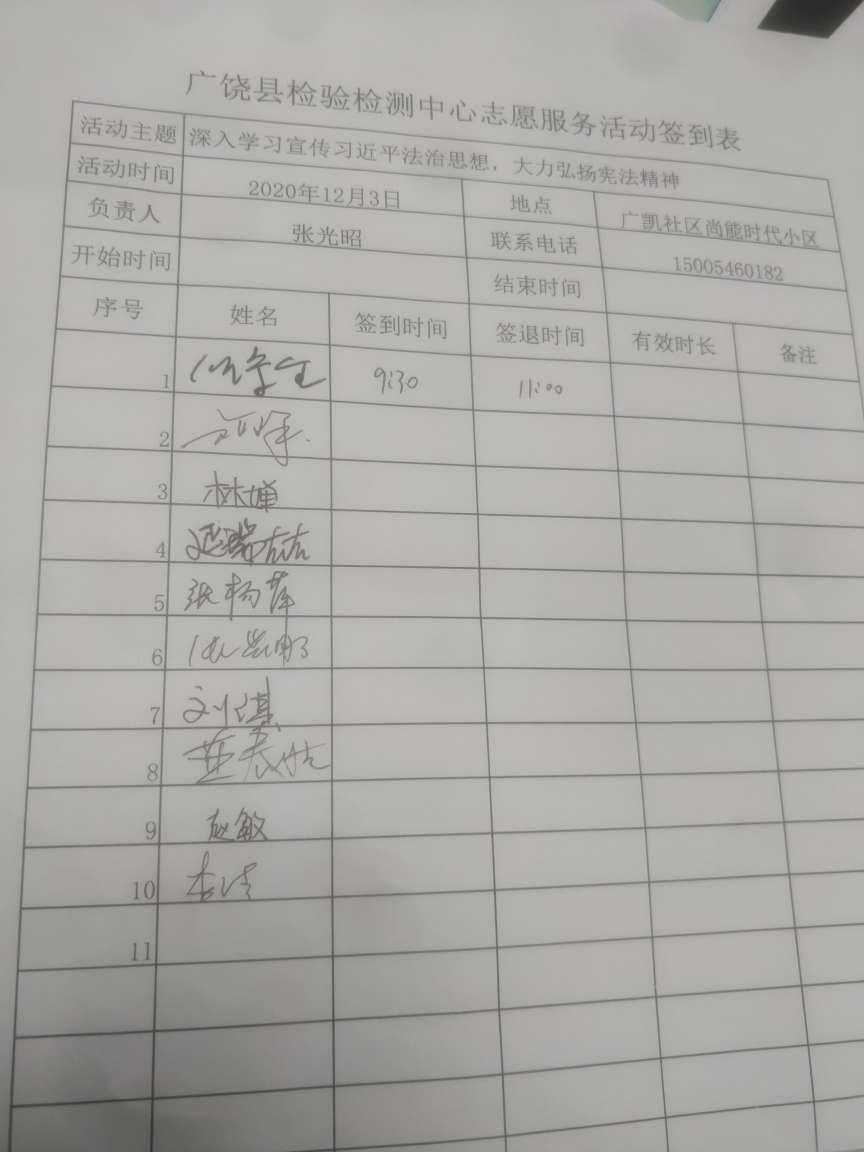 广饶县检验检测中心志愿服务活动签到表
活动主题 深入学习宣传习近平法治思想，大力弘扬宪法精神
活动时间 2020年12月3日 地点 广凯社区尚能时代小区
负责人 张光昭 联系电话 15005460182
开始时间 结束时间
序号 姓名 签到时间 签退时间 有效时长 备注
1 9:30 11:00
2
3 林婵
4 延瑞志
5 张杨萍
6
7 刘祺
8
9 赵敏
10 李洁
11